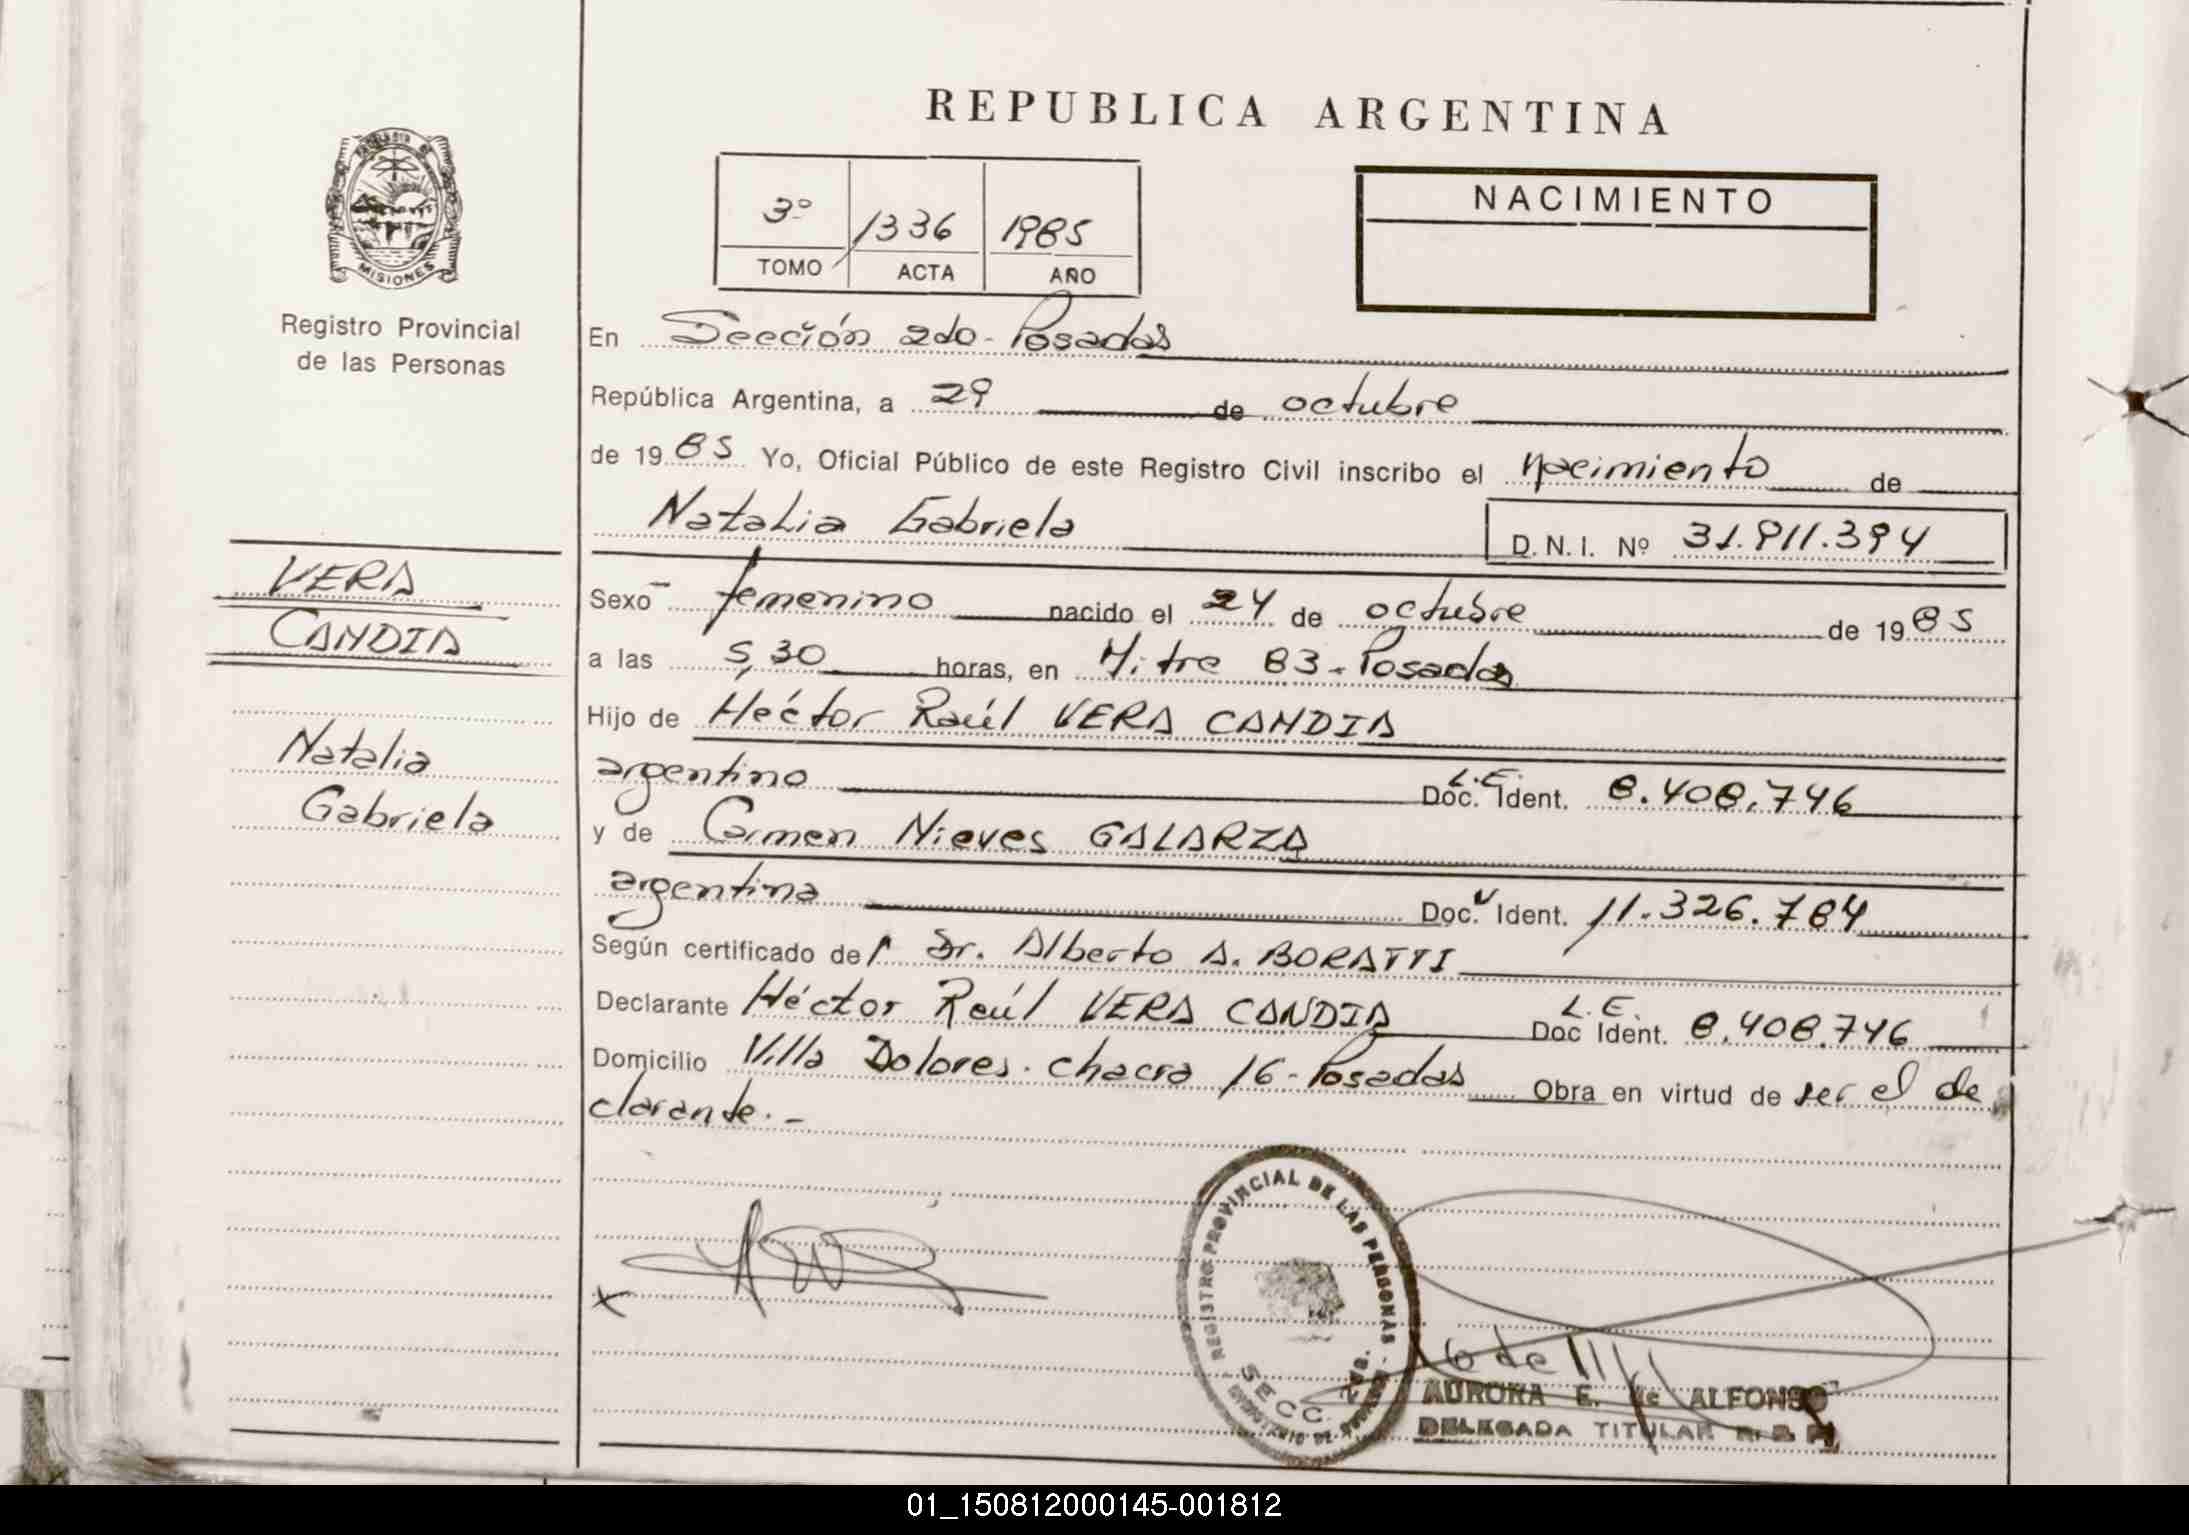 REPUBLICA ARGENTINA
MISIONES
Registro Provincial
de las Personas
3º 1336 1985
TOMO ACTA AÑO
NACIMIENTO
En Sección 2do - Posadas
República Argentina, a 29 de octubre
de 1985 Yo, Oficial Público de este Registro Civil inscribo el nacimiento de
Natalia Gabriela D.N.I. Nº 31.811.394
VERA
CANDIA
Natalia
Gabriela
Sexo femenino nacido el 24 de octubre de 1985
a las 5,30 horas, en Mitre 83 - Posadas
Hijo de Héctor Raúl VERA CANDIA
argentino L.E. Doc. Ident. 8.408.746
y de Carmen Nieves GALARZA
argentina Doc. Ident. 11.326.784
Según certificado del Dr. Alberto A. BORATTI
Declarante Héctor Raúl VERA CANDIA L.E. Doc Ident. 8.408.746
Domicilio Villa Dolores - chacra 16 - Posadas Obra en virtud de ser el de
clarante.-
REGISTRO PROVINCIAL DE LAS PERSONAS
SECC.
AURORA E. de ALFONSO
DELEGADA TITULAR
01_150812000145-001812